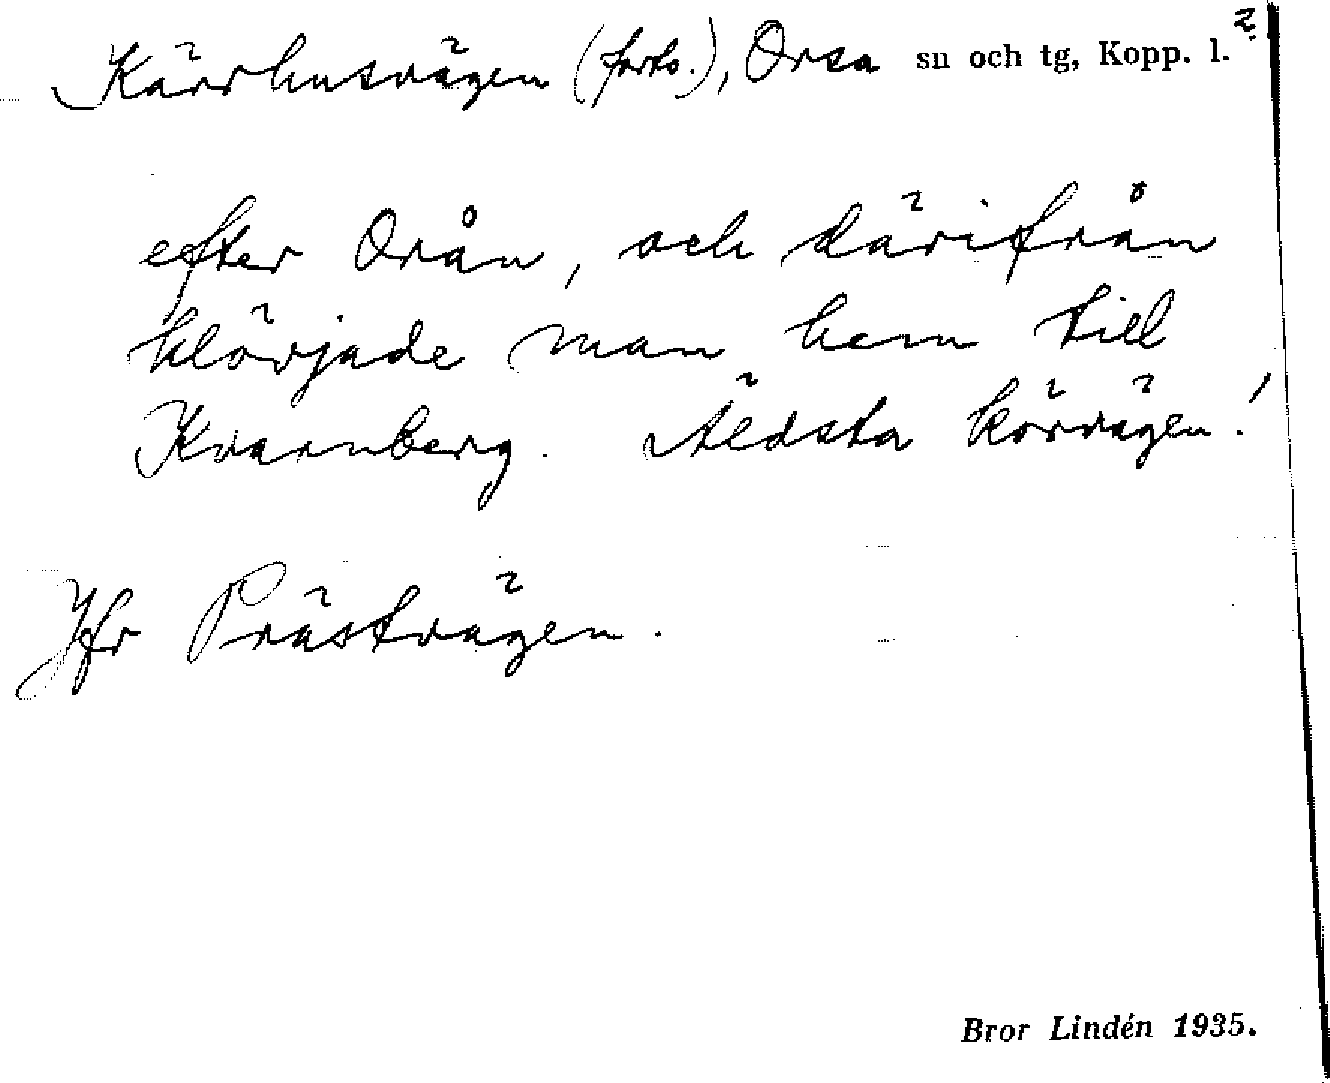 Kärrhusvägen (forts.), Orsa sn och tg, Kopp. l. 2.
efter Orån, och därifrån
klövjade man hem till
Kvarnberg. Äldsta körvägen!
Jfr Prästvägen.
Bror Lindén 1935.